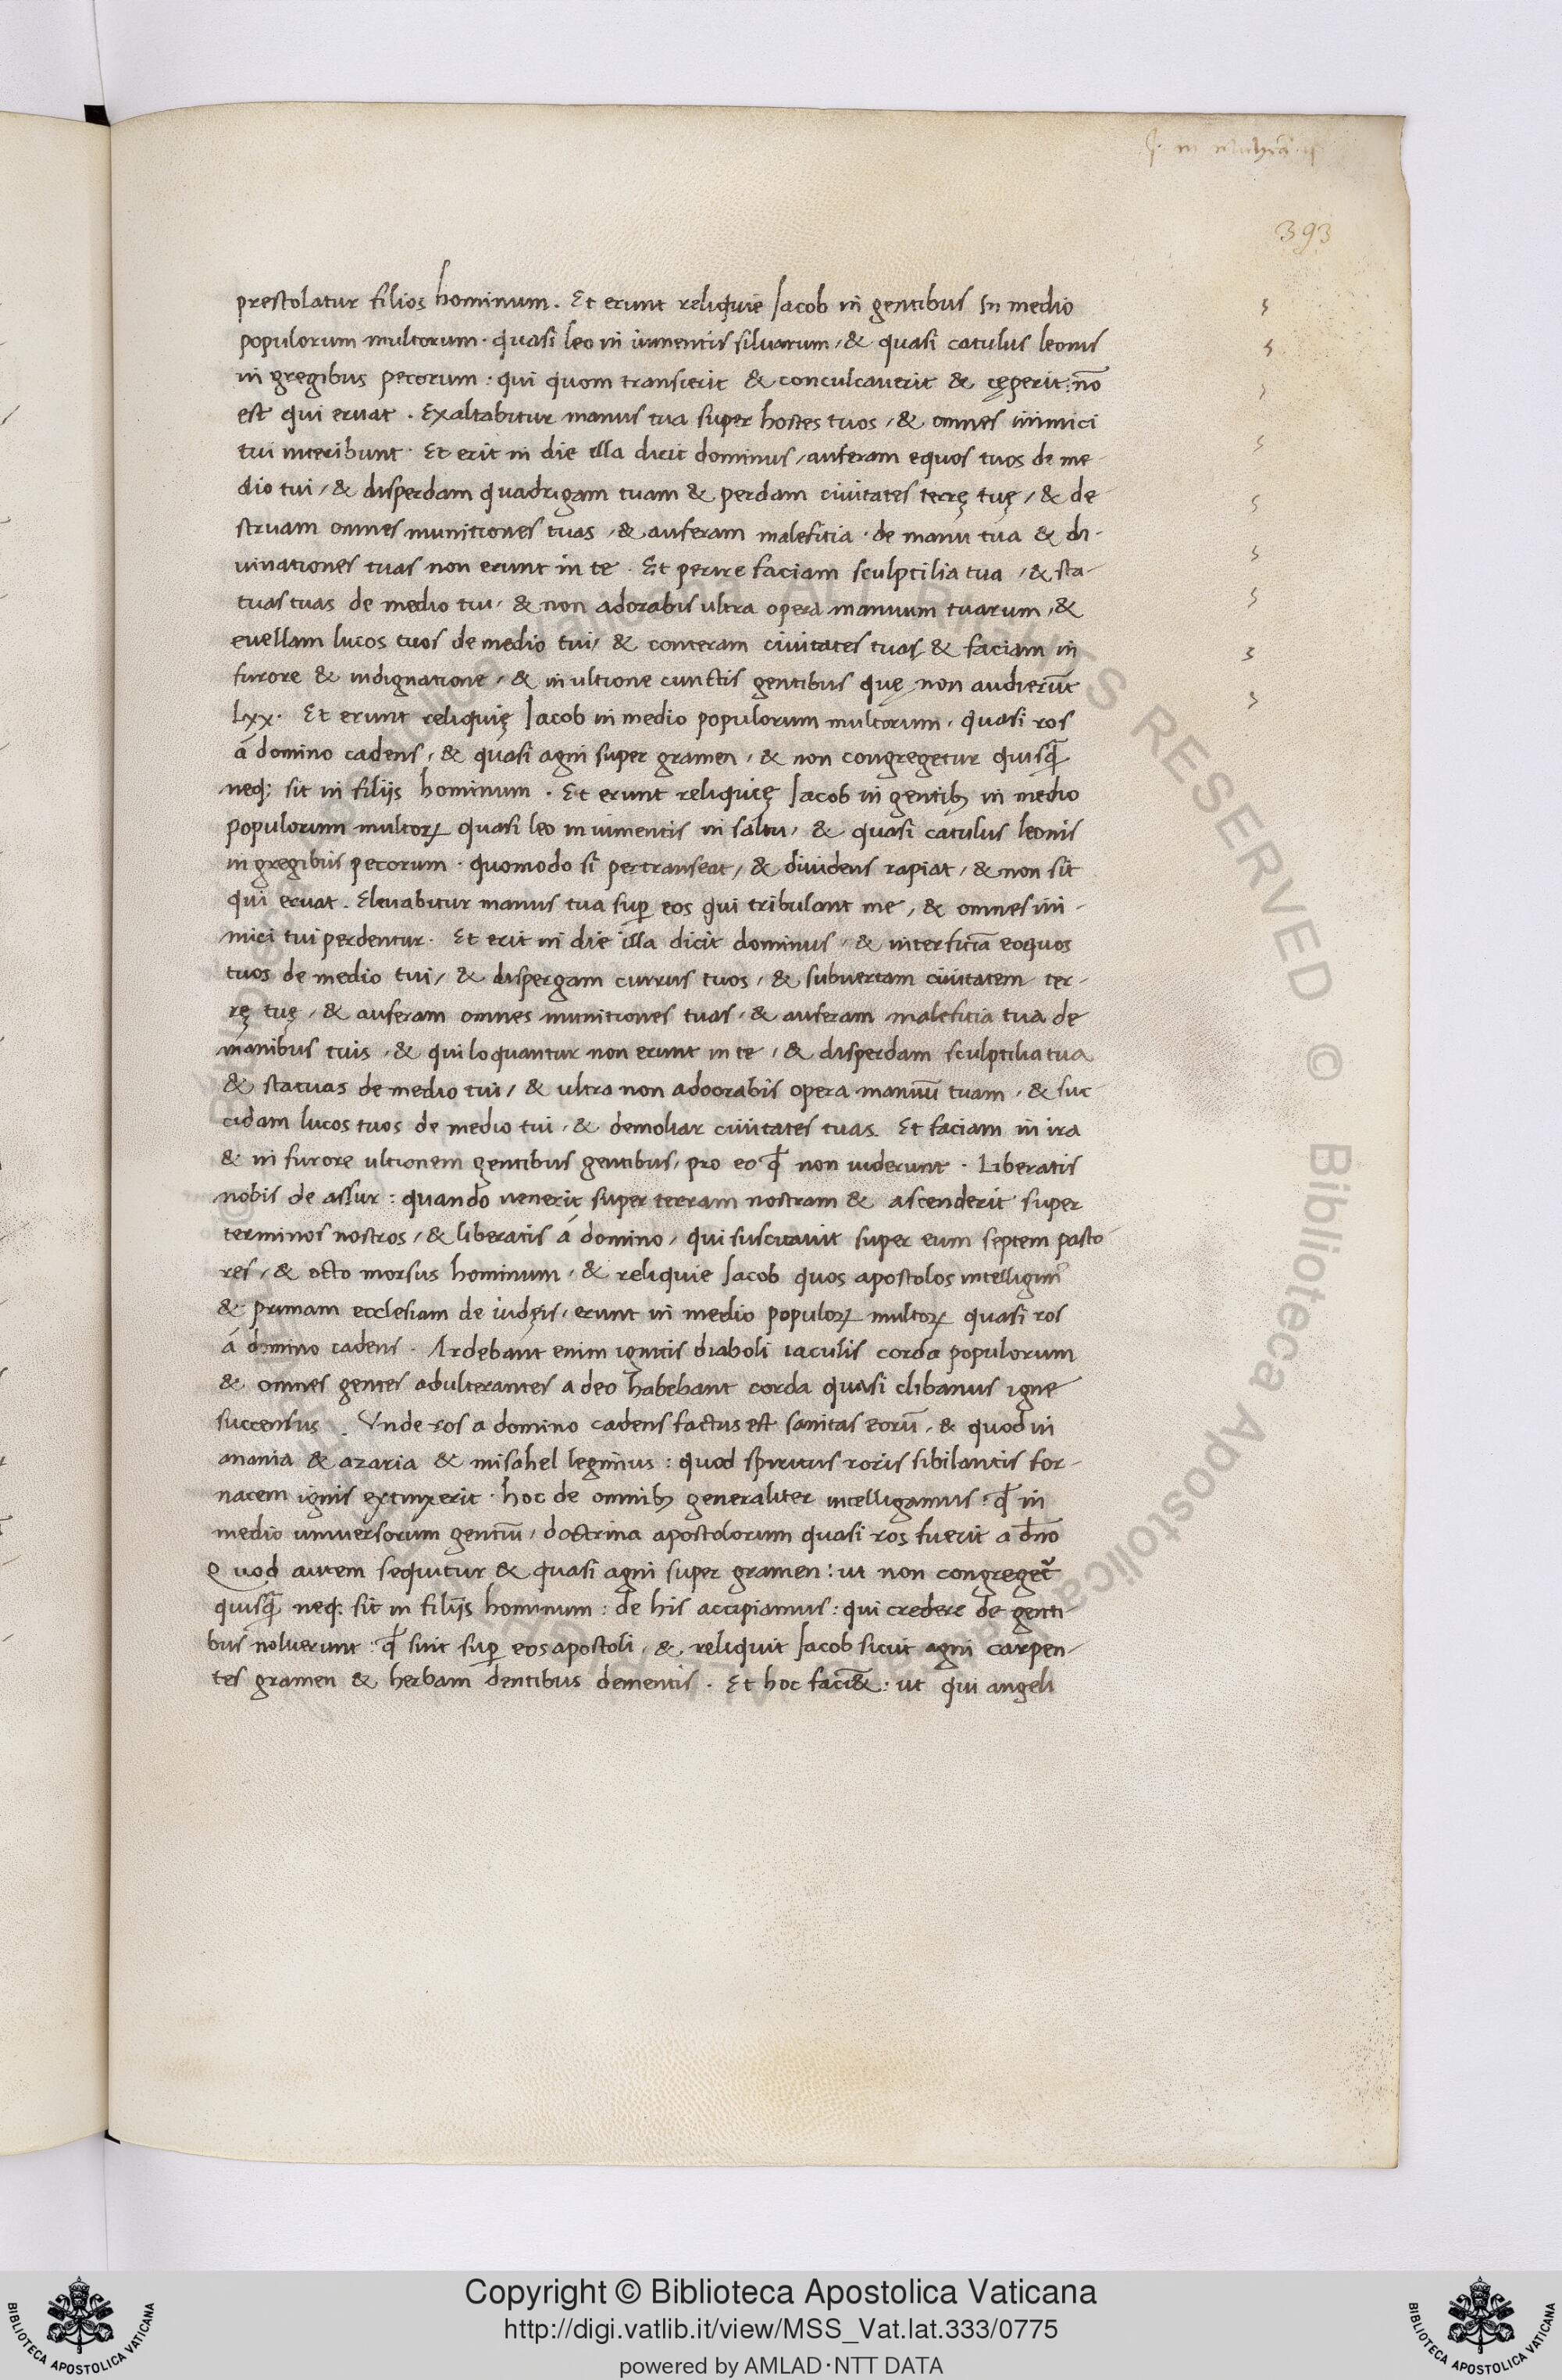 393
prestolatur filios hominum. Et erunt reliquie Iacob in gentibus In medio
populorum multorum. quasi leo in iumentis siluarum, & quasi catulus leonis
in gregibus pecorum: qui quom transierit & conculcauerit & cęperit: nō
est qui eruat. Exaltabitur manus tua super hostes tuos, & omnes inimici
tui interibunt. Et erit in die illa dicit dominus, auferam equos tuos de me-
dio tui, & disperdam quadrigam tuam & perdam ciuitates terrę tuę, & de
struam omnes munitiones tuas, & auferam maleficia. de manu tua & di-
uinationes tuas non erunt in te. Et perire faciam sculptilia tua, & sta-
tuas tuas de medio tui, & non adorabis ultra opera manuum tuarum, &
euellam lucos tuos de medio tui, & conteram ciuitates tuas & faciam in
furore & indignatione, & in ultione cunctis gentibus quę non audierūt
Lxx. Et erunt reliquię Iacob in medio populorum multorum, quasi ros
á domino cadens, & quasi agni super gramen, & non congregetur quisq̄
neq; sit in filijs hominum. Et erunt reliquię Iacob in gentibꝫ in medio
populorum multoꝝ quasi leo in iumentis in saltu, & quasi catulus leonis
in gregibus pecorum. quomodo si pertranseat, & diuidens rapiat, & non sit
qui eruat. Eleuabitur manus tua suꝑ eos qui tribulant me, & omnes ini-
mici tui perdentur. Et erit in die illa dicit dominus, & interficiā eoquos
tuos de medio tui, & dispergam currus tuos, & subuertam ciuitatem ter-
rę tuę, & auferam omnes munitiones tuas, & auferam maleficia tua de
manibus tuis, & qui loquantur non erunt in te, & disperdam sculptilia tua
& statuas de medio tui, & ultra non adoorabis opera manuū tuam, & suc
cidam lucos tuos de medio tui, & demoliar ciuitates tuas. Et faciam in ira
& in furore ultionem gentibus gentibus, pro eo ꝙ non uiderunt. Liberatis
nobis de assur: quando uenerit super terram nostram & ascenderit super
terminos nostros, & liberatis á domino, qui suscitauit super eum septem pasto
res, & octo morsus hominum, & reliquie Iacob quos apostolos intelligim᷒
& primam ecclesiam de iudęis, erunt in medio populoꝝ multoꝝ quasi ros
á domino cadens. Ardebant enim ignitis diaboli iaculis corda populorum
& omnes gentes adulterantes a deo habebant corda quasi clibanus igne
succensus. Vnde ros a domino cadens factus est sanitas eorū, & quod in
anania & azaria & misahel legimus: quod spiritus roris sibilantis for-
nacem ignis extinxerit. hoc de omnibꝫ generaliter intelligamus: ꝙ in
medio uniuersorum gentiū, doctrina apostolorum quasi ros fuerit a dn̄o
Quod autem sequitur & quasi agni super gramen: ut non congreget᷑
quisq̄ neq; sit in filijs hominum: de his accipiamus: qui credere de genti-
bus noluerunt: ꝙ sint suꝑ eos apostoli, & reliquit Iacob sicut agni carpen-
tes gramen & herbam dentibus dementis. Et hoc faci&: ut qui angeli
Copyright © Biblioteca Apostolica Vaticana
http://digi.vatlib.it/view/MSS_Vat.lat.333/0775
powered by AMLAD·NTT DATA